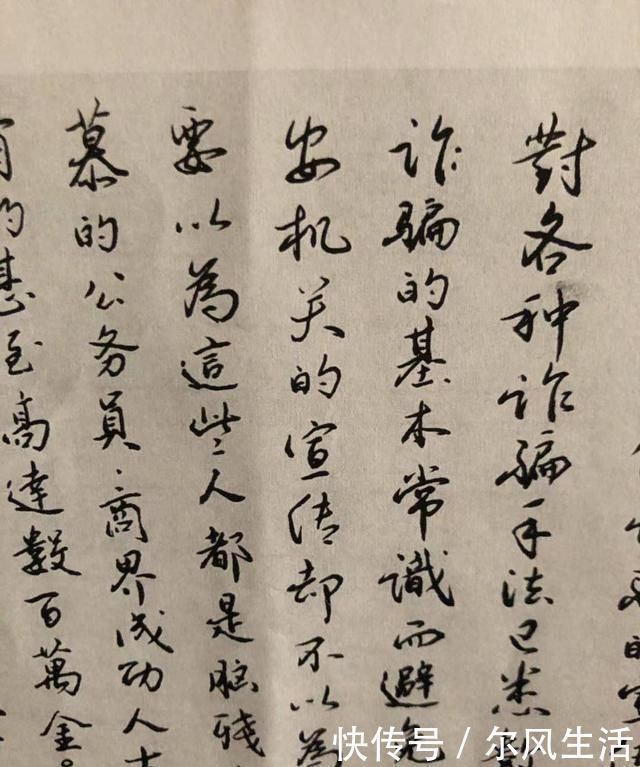 對各种诈骗手法已悉
诈骗的基本常識而避免
安机关的宣传却不以為
要以為這些人都是脑残
慕的公务員、商界成功人士
的甚至高達数百萬金。
快传号/尔风生活